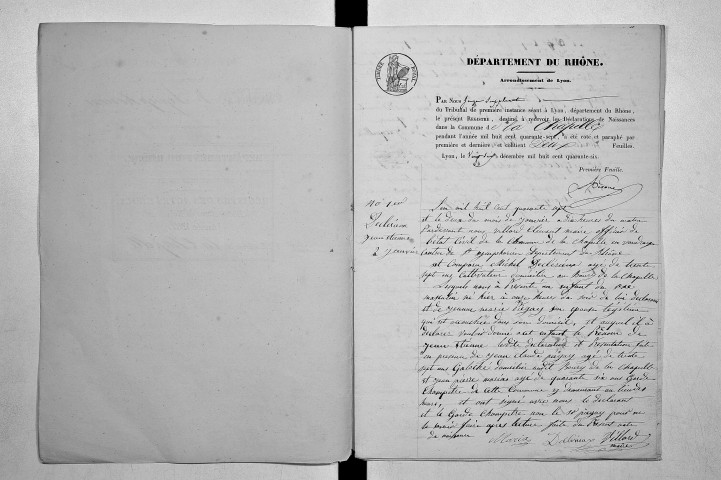 DÉPARTEMENT DU RHÔNE.
Arrondissement de Lyon.
PAR NOUS Juge Suppléant
du Tribunal de première instance séant à Lyon, département du Rhône,
le présent REGISTRE, destiné à recevoir les Déclarations de Naissances
dans la Commune d la Chapelle
pendant l'année mil huit cent quarante-sept, a été coté et paraphé par
première et dernière, et contient Deux Feuilles.
Lyon, le décembre mil huit cent quarante-six.
Première Feuille.
No 1er
Jean Etienne
2 janvier
L'an mil huit cent quarante sept
et le deux du mois de janvier a dix heures du matin
Pardevant nous Villard Clement maire officier de
l'etat Civil de la Commune de la Chapelle en
Canton de St Symphorien Departement du Rhône
est Comparu Michel agé de trente
sept ans Cultivateur domicilier au Bourg de la Chapelle
Lequel nous à Présenté un enfant du sexe
masculin né hier à onze heures du soir de lui declarant
et de Jeanne marie Pizay son epouse légitime
qui est accouchée dans son Domicile, et auquel il à
declarer vouloir donné cet enfant le Prénom de
Jean Etienne les dite declaration et Présentation faite
en presence de Jean Claude pizay agé de trente
sept ans domicilier audit Bourg de la Chapelle
et Jean pierre macias age de quarante six ans Garde
Champetre de cette Commune y demeurant au lieu des
mures, et ont signé avec nous le declarant
et le Garde Champetre non le Sr pizay pour ne
le savoir faire après lecture faite du Present acte
de naissance
Villard
maire